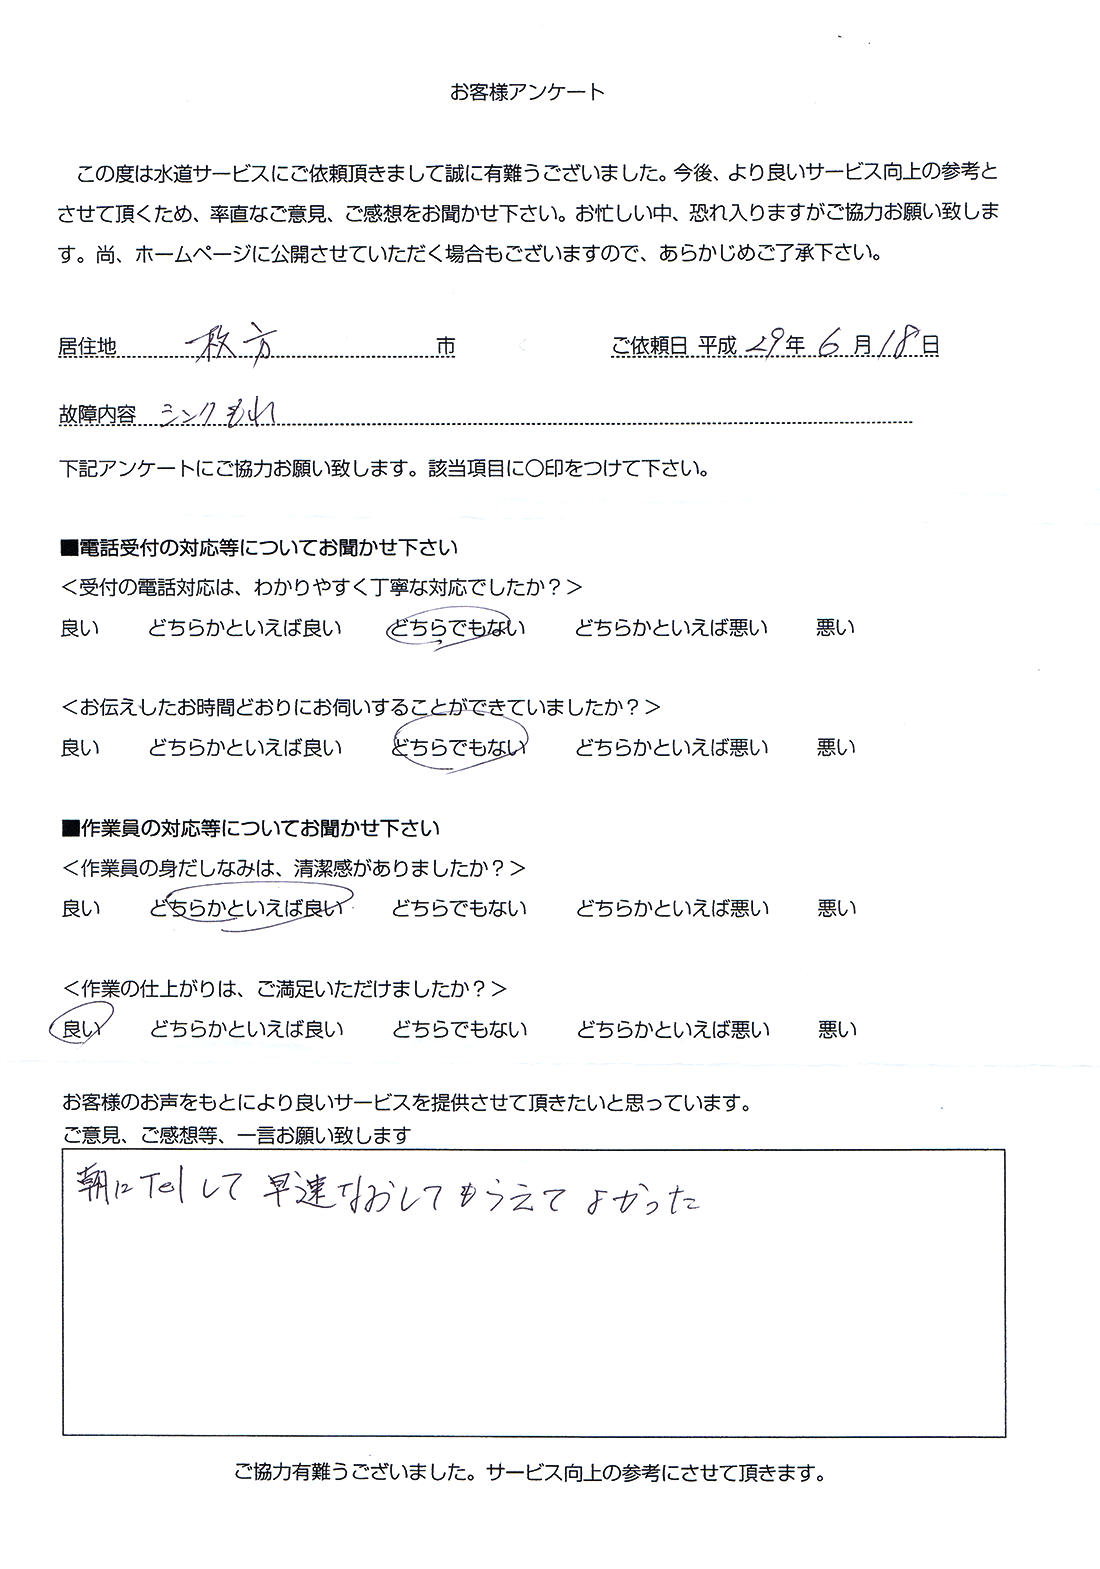 お客様アンケート
この度は水道サービスにご依頼頂きまして誠に有難うございました。今後、より良いサービス向上の参考と
させて頂くため、率直なご意見、ご感想をお聞かせ下さい。お忙しい中、恐れ入りますがご協力お願い致しま
す。尚、ホームページに公開させていただく場合もございますので、あらかじめご了承下さい。
居住地 枚方 市 ご依頼日 平成 29 年 6 月 18 日
故障内容 シンクもれ
下記アンケートにご協力お願い致します。該当項目に〇印をつけて下さい。
■電話受付の対応等についてお聞かせ下さい
＜受付の電話対応は、わかりやすく丁寧な対応でしたか？＞
良い どちらかといえば良い どちらでもない どちらかといえば悪い 悪い
＜お伝えしたお時間どおりにお伺いすることができていましたか？＞
良い どちらかといえば良い どちらでもない どちらかといえば悪い 悪い
■作業員の対応等についてお聞かせ下さい
＜作業員の身だしなみは、清潔感がありましたか？＞
良い どちらかといえば良い どちらでもない どちらかといえば悪い 悪い
＜作業の仕上がりは、ご満足いただけましたか？＞
良い どちらかといえば良い どちらでもない どちらかといえば悪い 悪い
お客様のお声をもとにより良いサービスを提供させて頂きたいと思っています。
ご意見、ご感想等、一言お願い致します
朝にTelして 早速なおしてもらえて よかった
ご協力有難うございました。サービス向上の参考にさせて頂きます。